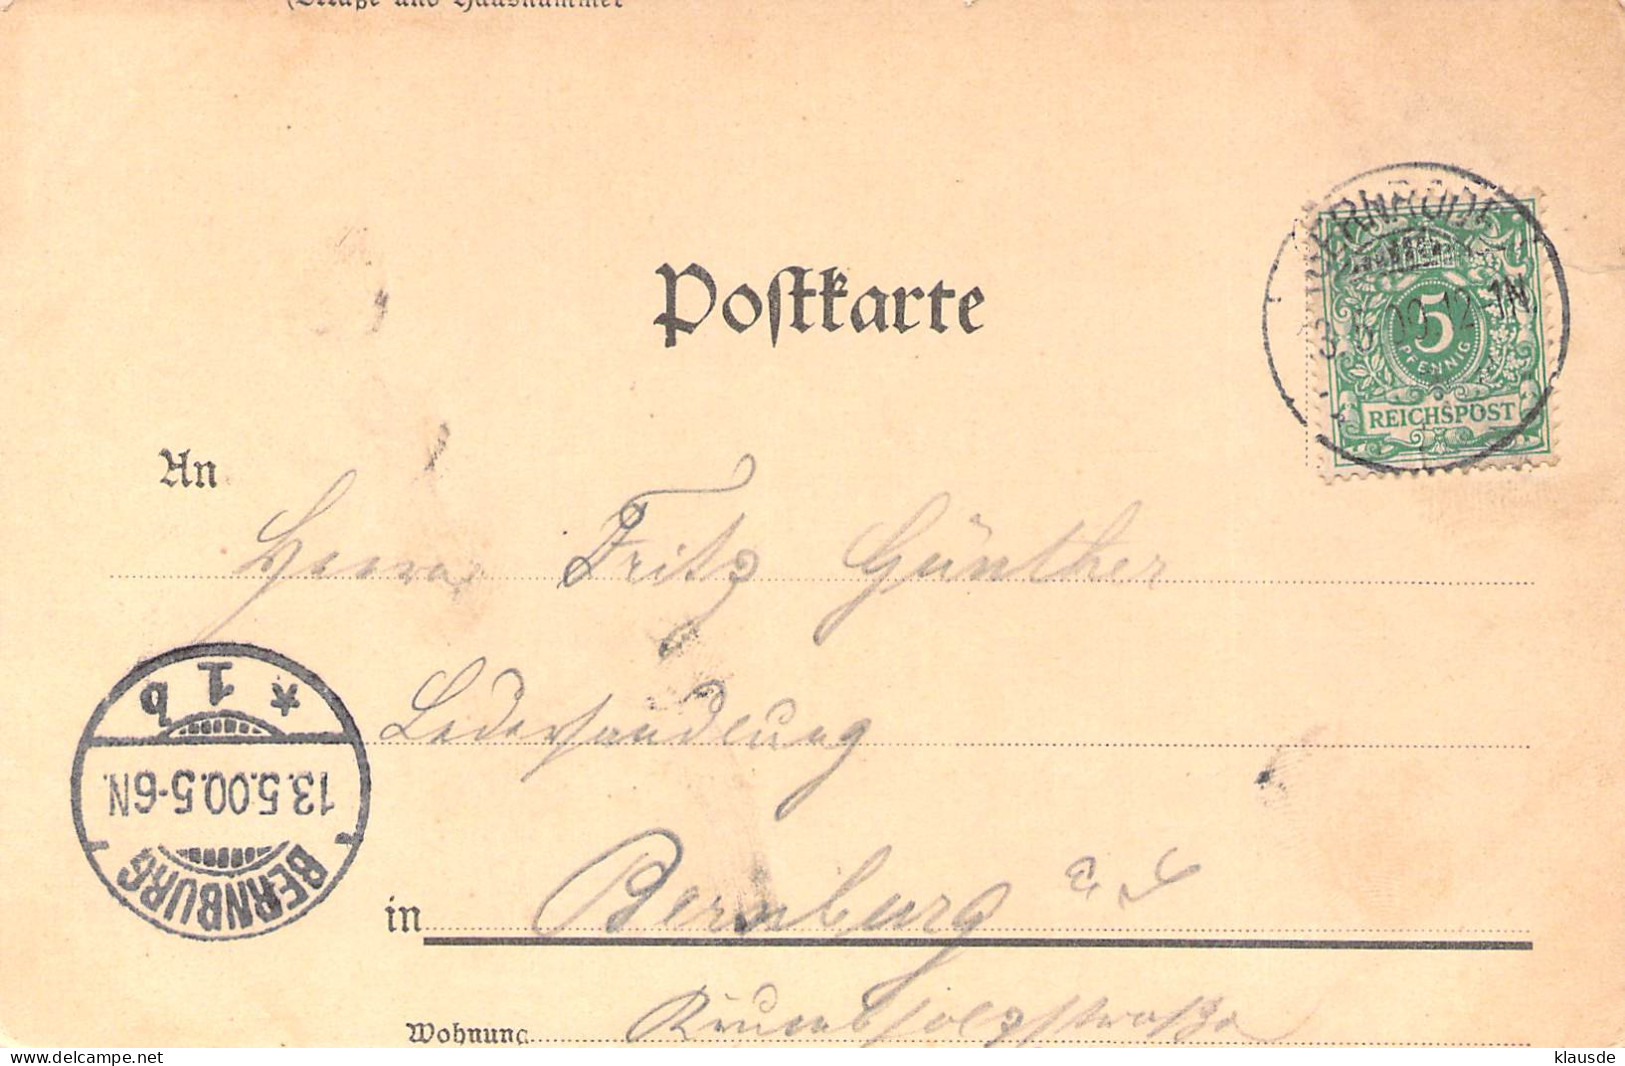 (Straße und Hausnummer
Postkarte
GERNRODE
13.5.00.12-1N.
5
PFENNIG
REICHSPOST
An
Herrn Fritz Günther
Lederhandlung
* 1 b
13.5.00.5-6N.
BERNBURG
in Bernburg a. S.
Wohnung Krumbholzstraße
klausde